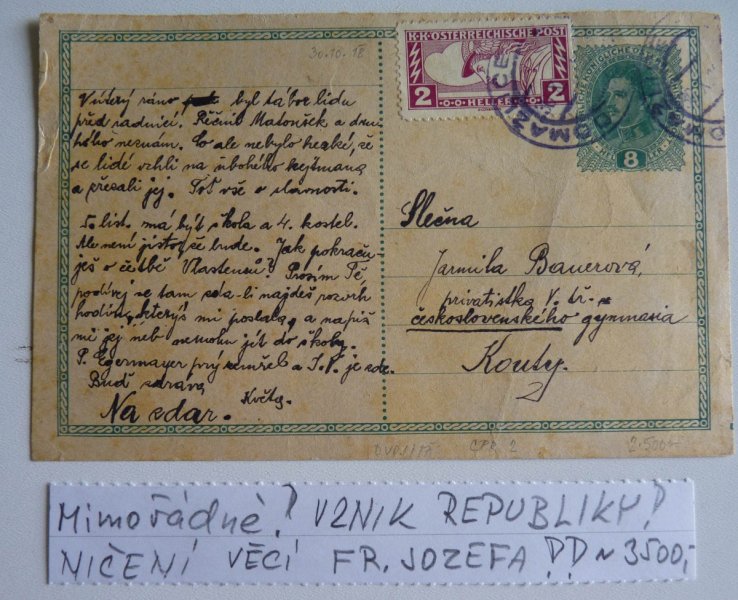 30.10.18
K.K. ÖSTERREICHISCHE POST
2 2
HELLER
DOMAŽLICE
8
V úterý ráno byl tábor lidu
před radnicí. Řečnil Matoušek a dru
hého neznám. Co ale nebylo hezké, že
se lidé vrhli na ubohého hejtmana
a přesali jej. Toť vše o slavnosti.
5. list. má být škola a 4. kostel.
Ale není jisto, že bude. Jak pokraču-
ješ o četbě Vlastenců? Prosím Tě,
podívej se tam zda-li najdeš rozvrh
hodin, kterýs mi poslala, a napiš
mi jej, neb nemohu jít do školy.
P. Egermayer prý zemřel a J. P. je zde.
Buď zdráva
Květa.
Na zdar.
Slečna
Jarmila Bauerová,
privatistka V. tř.
československého gymnasia
Kouty.
CPŘ 2
2.500,-
Mimořádné! VZNIK REPUBLIKY!
NIČENÍ VĚCÍ FR. JOZEFA DD ~ 3500,-